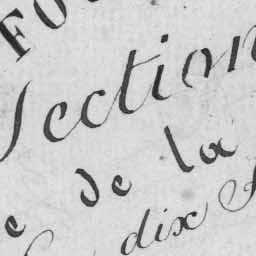 FO
Section
e de la
dix